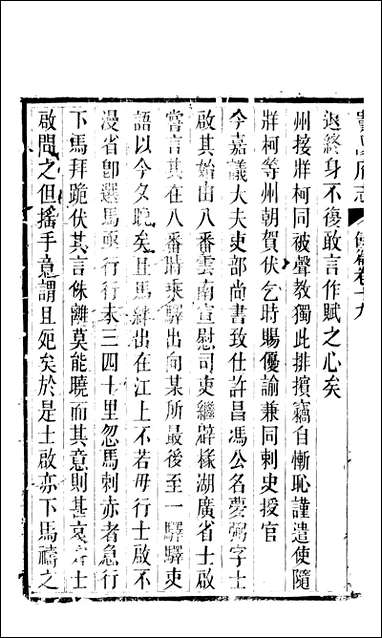 貴陽府志 餘編卷十九
退終身不復敢言作賦之心矣
州接牂柯同被聲教獨此排擯竊自慚恥謹遣使隨
牂柯等州朝賀伏乞時賜優諭兼同刺史授官
今嘉議大夫吏部尚書致仕許昌馮公名夢弼字士
啟其始由八番雲南宣慰司吏繼辟椽湖廣省士啟
嘗言其在八番時乘驛出向某所最後至一驛驛吏
語以今夕晚矣且馬絆出在江上不若毋行士啟不
漫省卽選馬乘行行未三四十里忽馬刺赤者急行
下馬拜跪伏其言侏離莫能曉而其意則甚哀 士
啟問之但搖手意謂且死矣於是士啟亦下馬禱之